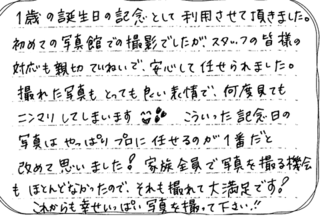 1歳の誕生日の記念として利用させて頂きました。
初めての写真館での撮影でしたが、スタッフの皆様の
対応も親切ていねいで、安心して任せられました。
撮れた写真も とっても良い表情で、何度見ても
ニンマリしてしまいます こういった記念日の
写真は やっぱり プロに 任せるのが 1番だと
改めて思いました! 家族全員で写真を撮る機会
も ほとんどなかったので、それも撮れて大満足です!
これからも幸せいっぱい写真を撮って下さい!!